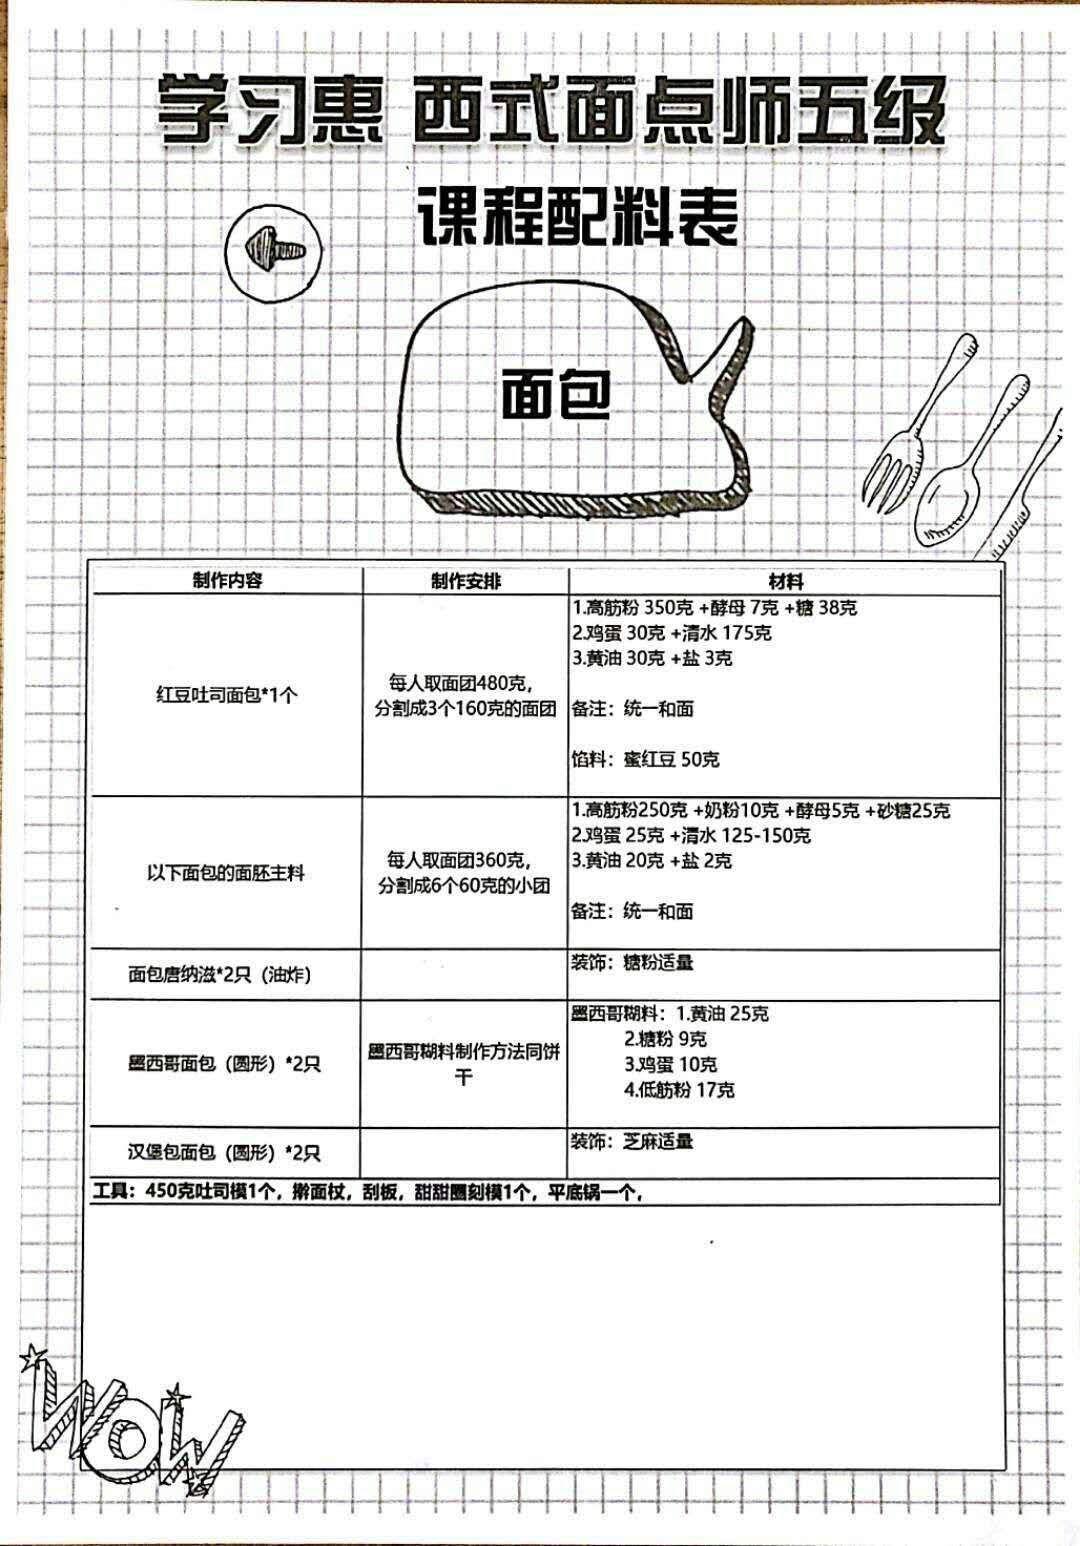 学习惠 西式面点师五级
课程配料表
面包
制作内容 制作安排 材料
红豆吐司面包*1个
每人取面团480克，
分割成3个160克的面团
1.高筋粉 350克 +酵母 7克 +糖 38克
2.鸡蛋 30克 +清水 175克
3.黄油 30克 +盐 3克
备注：统一和面
馅料：蜜红豆 50克
以下面包的面胚主料
每人取面团360克，
分割成6个60克的小团
1.高筋粉250克 +奶粉10克 +酵母5克 +砂糖25克
2.鸡蛋 25克 +清水 125-150克
3.黄油 20克 +盐 2克
备注：统一和面
面包唐纳滋*2只（油炸）
装饰：糖粉适量
墨西哥面包（圆形）*2只
墨西哥糊料制作方法同饼
干
墨西哥糊料：1.黄油 25克
2.糖粉 9克
3.鸡蛋 10克
4.低筋粉 17克
汉堡包面包（圆形）*2只
装饰：芝麻适量
工具：450克吐司模1个，擀面杖，刮板，甜甜圈刻模1个，平底锅一个，
WOW